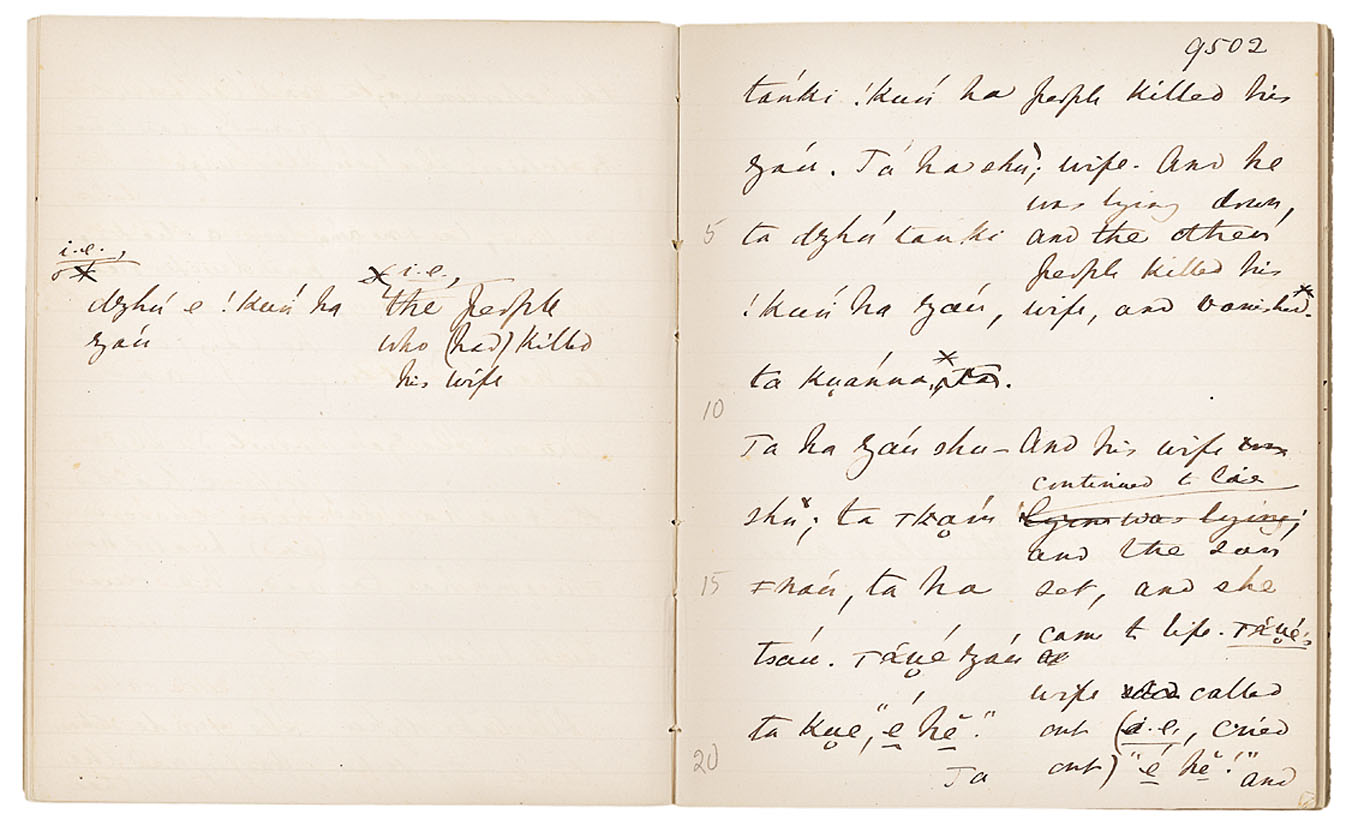 i.e.,
dzhú e !kuń ha
zaú
i.e.,
the people
who (had) killed
his wife
9502
tańki !kuń ha people killed his
zaú. Tá ha shù; wife. And he
was lying down,
5 ta dzhú tańki and the other
people killed his
!kuń ha zaú, wife, and vanished.
ta kuánna,
10
Ta ha zaú shu- And his wife
continued to lie
shù; ta ⊤kam lying;
and the sun
15 ǂnaú, ta ha set, and she
came to life. ⊤áué's
tsáu. ⊤áué zaú
wife called
ta kue, "é hĕ." out (i.e., cried
20 out) "é hĕ!" and
Ta